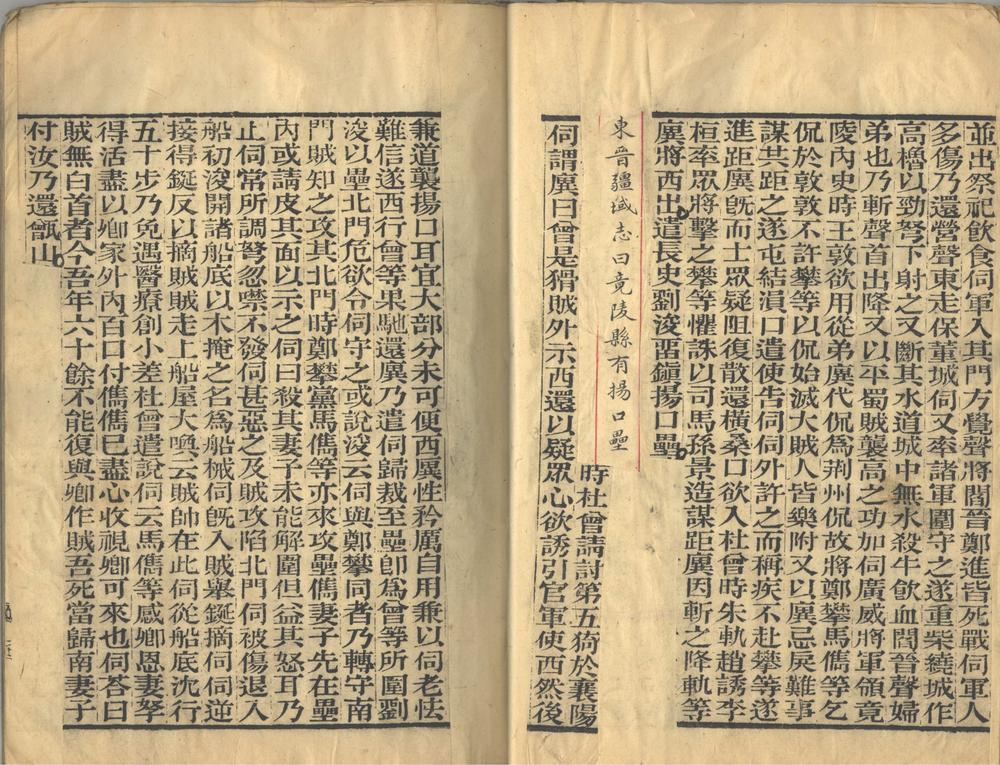 並出祭祀飲食伺軍入其門方覺聲將閻晉鄭進皆死戰伺軍人
多傷乃還營聲東走保董城伺又率諸軍圍守之遂重柴繞城作
高櫓以勁弩下射之又斷其水道城中無水殺牛飲血閻晉聲婦
弟也乃斬聲首出降又以平蜀賊襲高之功加伺廣威將軍領竟
陵內史時王敦欲用從弟廙代侃爲荆州侃故將鄭攀馬儁等乞
侃於敦敦不許攀等以侃始滅大賊人皆樂附又以廙忌戾難事
謀共距之遂屯結溳口遣使告伺伺外許之而稱疾不赴攀等遂
進距廙旣而士眾疑阻復散還橫桑口欲入杜曾時朱軌趙誘李
桓率眾將擊之攀等懼誅以司馬孫景造謀距廙因斬之降軌等
廙將西出遣長史劉浚畱鎭揚口壘
東晋疆域志曰竟陵縣有揚口壘
時杜曾請討第五猗於襄陽
伺謂廙曰曾是猾賊外示西還以疑眾心欲誘引官軍使西然後
兼道襲揚口耳宜大部分未可便西廙性矜厲自用兼以伺老怯
難信遂西行曾等果馳還廙乃遣伺歸裁至壘卽爲曾等所圍劉
浚以壘北門危欲令伺守之或說浚云伺與鄭攀同者乃轉守南
門賊知之攻其北門時鄭攀黨馬儁等亦來攻壘儁妻子先在壘
內或請皮其面以示之伺曰殺其妻子未能解圍但益其怒耳乃
止伺常所調弩忽噤不發伺甚惡之及賊攻陷北門伺被傷退入
船初浚開諸船底以木掩之名爲船械伺旣入賊舉鋋摘伺伺逆
接得鋋反以摘賊賊走上船屋大喚云賊帥在此伺從船底沈行
五十步乃免遇醫療創小差杜曾遣說伺云馬儁等感卿恩妻孥
得活盡以卿家外內百口付儁儁已盡心收視卿可來也伺荅曰
賊無白首者今吾年六十餘不能復與卿作賊吾死當歸南妻子
付汝乃還甑山